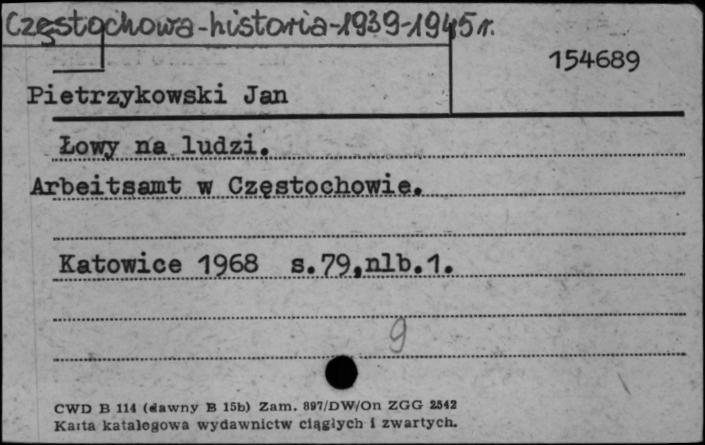 Częstochowa-historia-1939-1945r.
154689
Pietrzykowski Jan
Łowy na ludzi.
Arbeitsamt w Częstochowie.
Katowice 1968 s.79,nlb.1.
9
CWD B 114 (dawny B 15b) Zam. 897/DW/On ZGG 2542
Karta katalogowa wydawnictw ciągłych i zwartych.